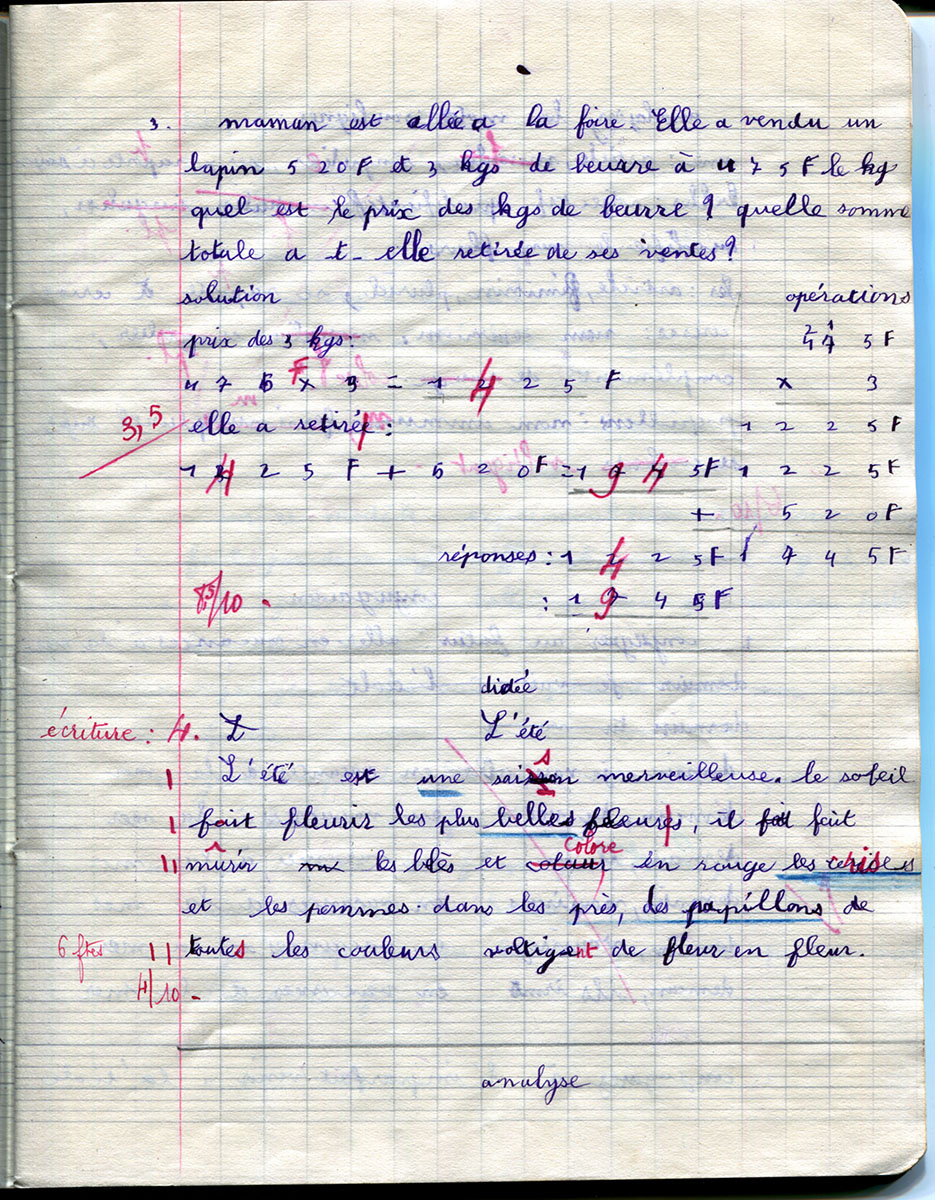 3. maman est allée a la foire. Elle a vendu un
lapin 520F et 3 kgs de beurre à 475F le kg
quel est le prix des kgs de beurre? quelle somme
totale a t-elle retirée de ses ventes?
solution opérations
prix des 3 kgs: 475F
475F x 3 = 1425F x 3
3,5 elle a retirée: 1225F
1425F + 520F = 1945F 1225F
+ 520F
réponses: 1425F 1745F
8,5/10. : 1945F
dictée
écriture: 4. L L'été
L'été est une saison merveilleuse. le soleil
fait fleurir les plus belles fleurs, il fait
mûrir les blés et colore en rouge les cerises
et les pommes. dans les près, des papillons de
6 ftes toutes les couleurs voltigent de fleur en fleur.
4/10.
analyse